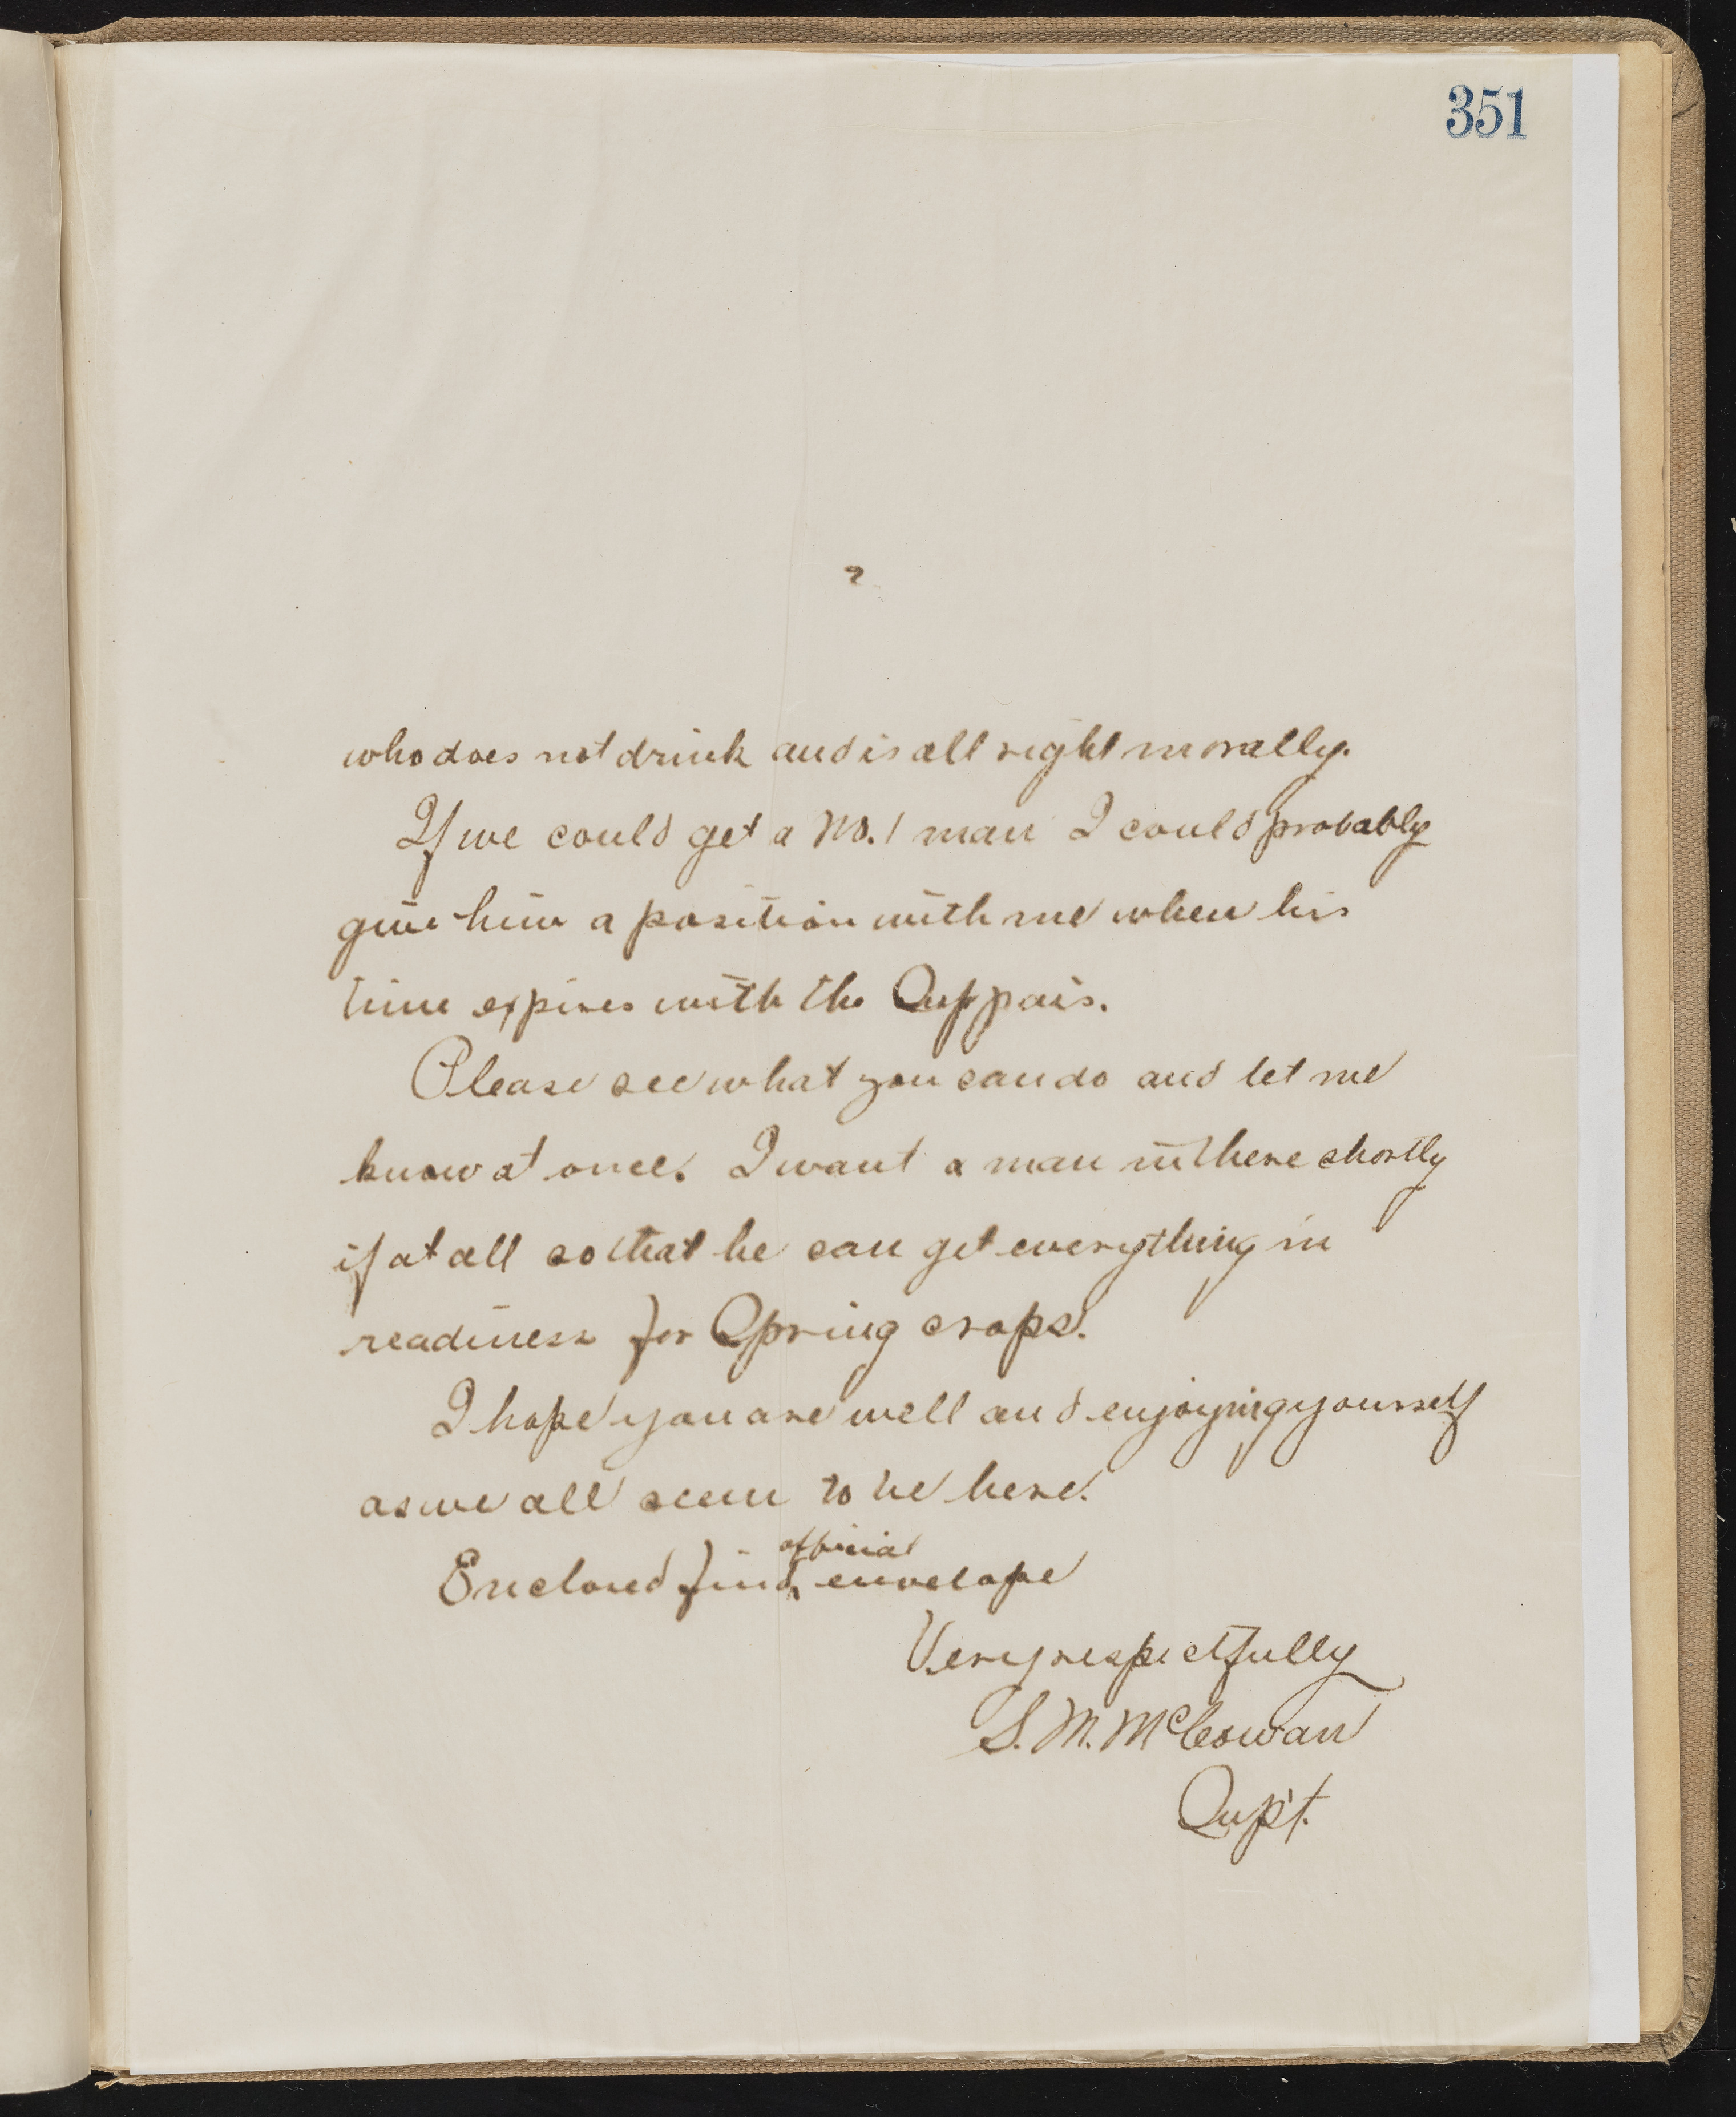 351
2
who does not drink and is all right morally.
If we could get a No. 1 man I could probably
give him a position with me when his
time expires with the Suppais.
Please see what you can do and let me
know at once. I want a man in there shortly
if at all so that he can get everything in
readiness for Spring crops.
I hope you are well and enjoying yourself
as we all seem to be here.
official
Enclosed find ^ envelope
Very respectfully
S. M. McCowan
Sup't.